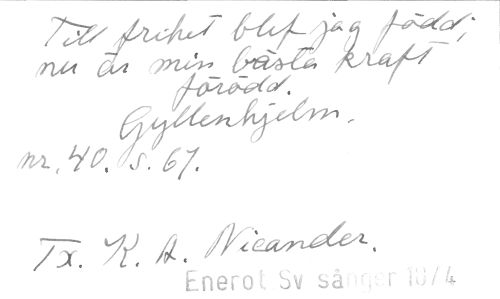 Till frihet blef jag född;
nu är min bästa kraft
förödd.
Gyllenhjelm.
nr. 40. s. 67.
Tx. K. A. Nicander.
Enerot Sv sånger 18/4